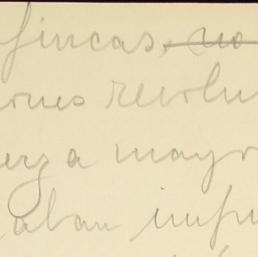 fincas, no
ones revolu
erza mayo
aban impu